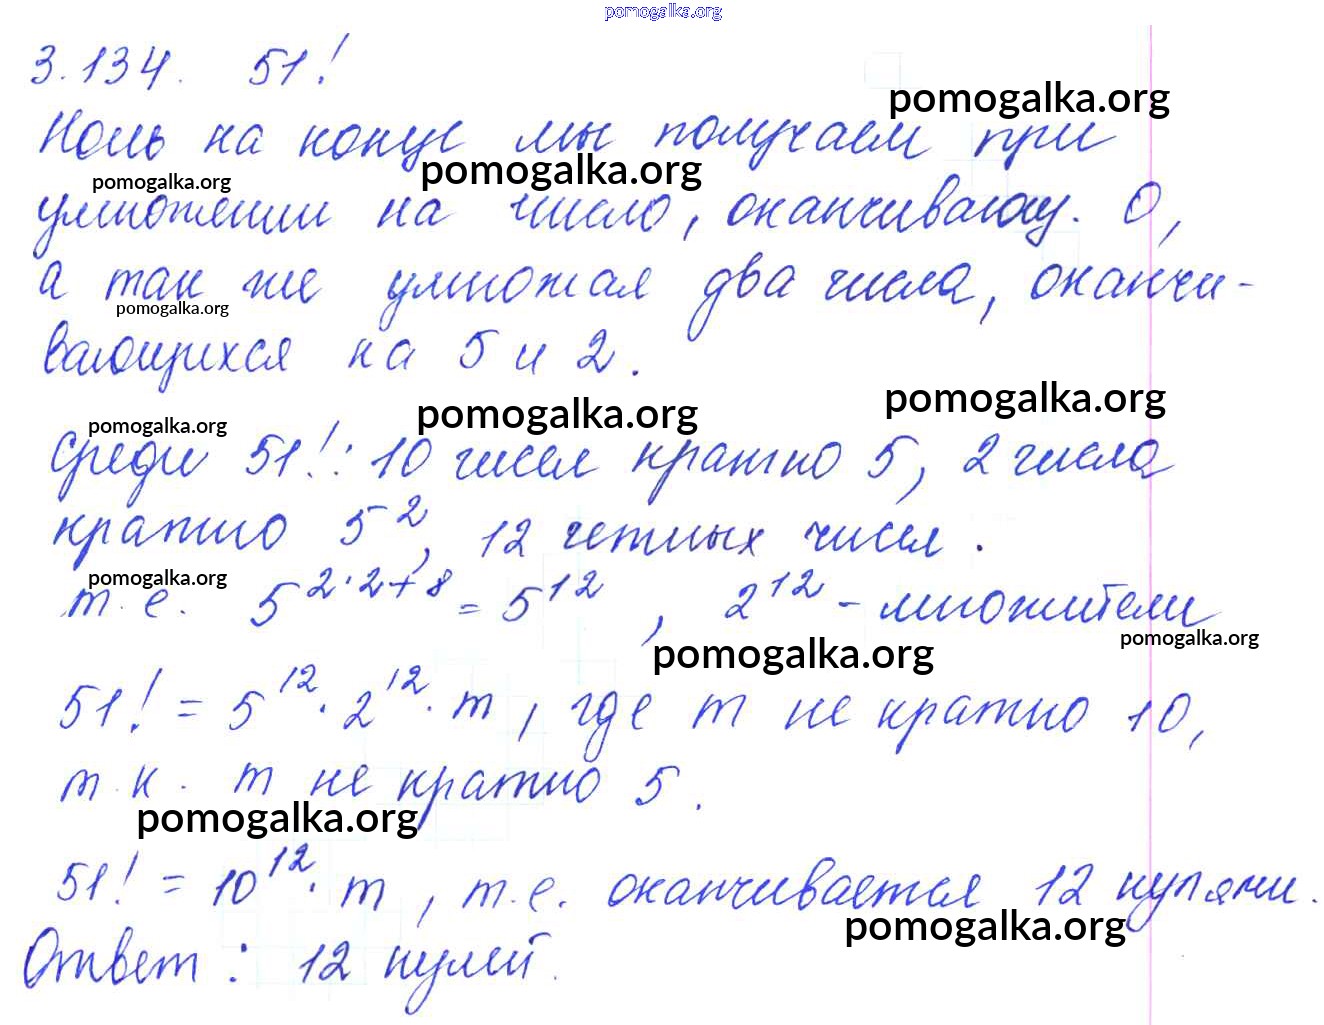 pomogalka.org
3.134. 51!
pomogalka.org
Ноль на конце мы получаем при
pomogalka.org pomogalka.org
умножении на число, оканчивающ. 0,
а так же умножая два числа, оканчи-
pomogalka.org
вающихся на 5 и 2.
pomogalka.org pomogalka.org pomogalka.org
Среди 51!: 10 чисел кратно 5, 2 числа
кратно 5², 12 четных чисел.
pomogalka.org
т.е. 5^{2·2+8} = 5^{12}, 2^{12} - множители
pomogalka.org pomogalka.org
51! = 5^{12} · 2^{12} · m, где m не кратно 10,
т.к. m не кратно 5.
pomogalka.org
51! = 10^{12} · m, т.е. оканчивается 12 нулями.
pomogalka.org
Ответ: 12 нулей.